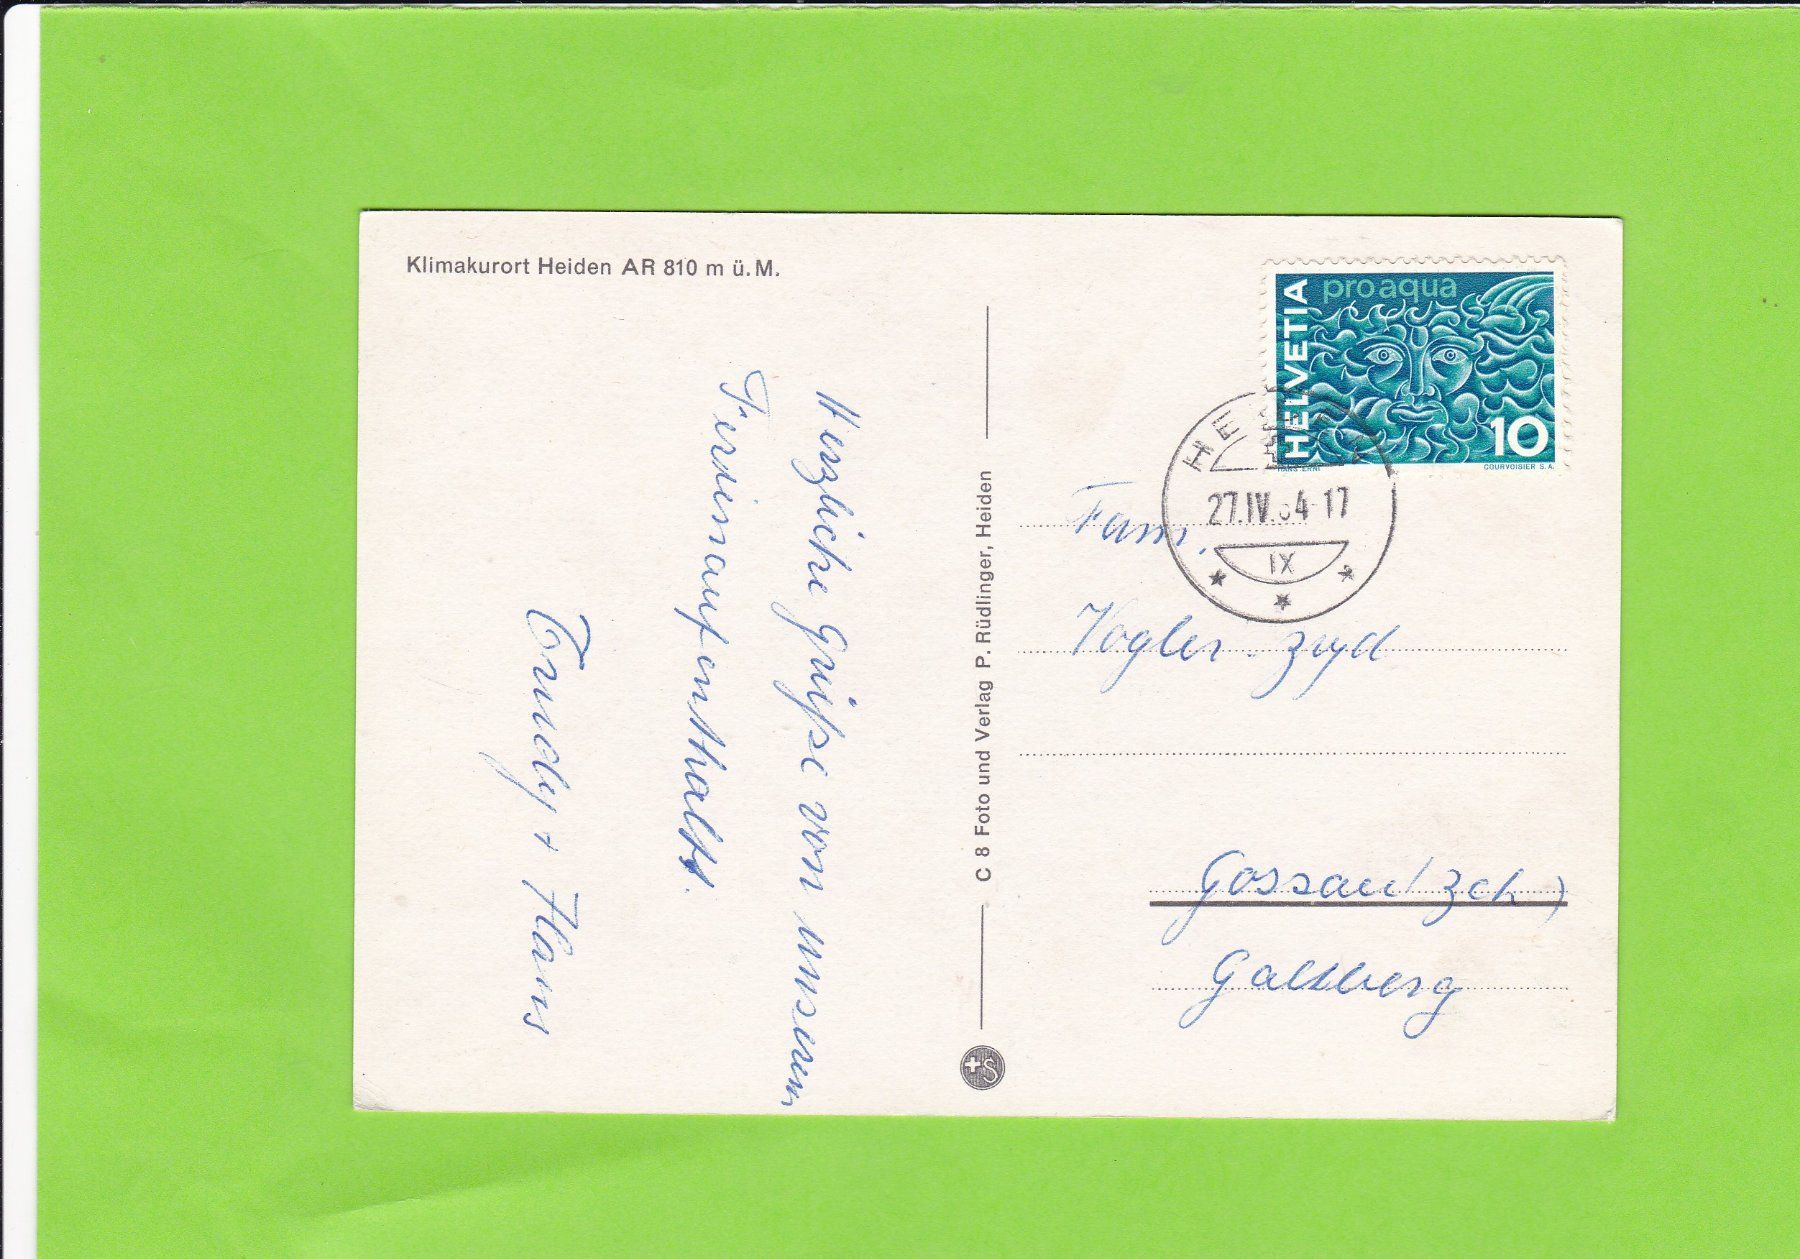 Klimakurort Heiden AR 810 m ü. M.
Herzliche Grüsse von unserem
Ferienaufenthalt.
Trudy + Hans
C 8 Foto und Verlag P. Rüdlinger, Heiden
+S
HELVETIA
pro aqua
10
HANS ERNI
COURVOISIER S.A.
27.IV.64-17
IX
Fam.
Vogler-
Gossau / Zch)